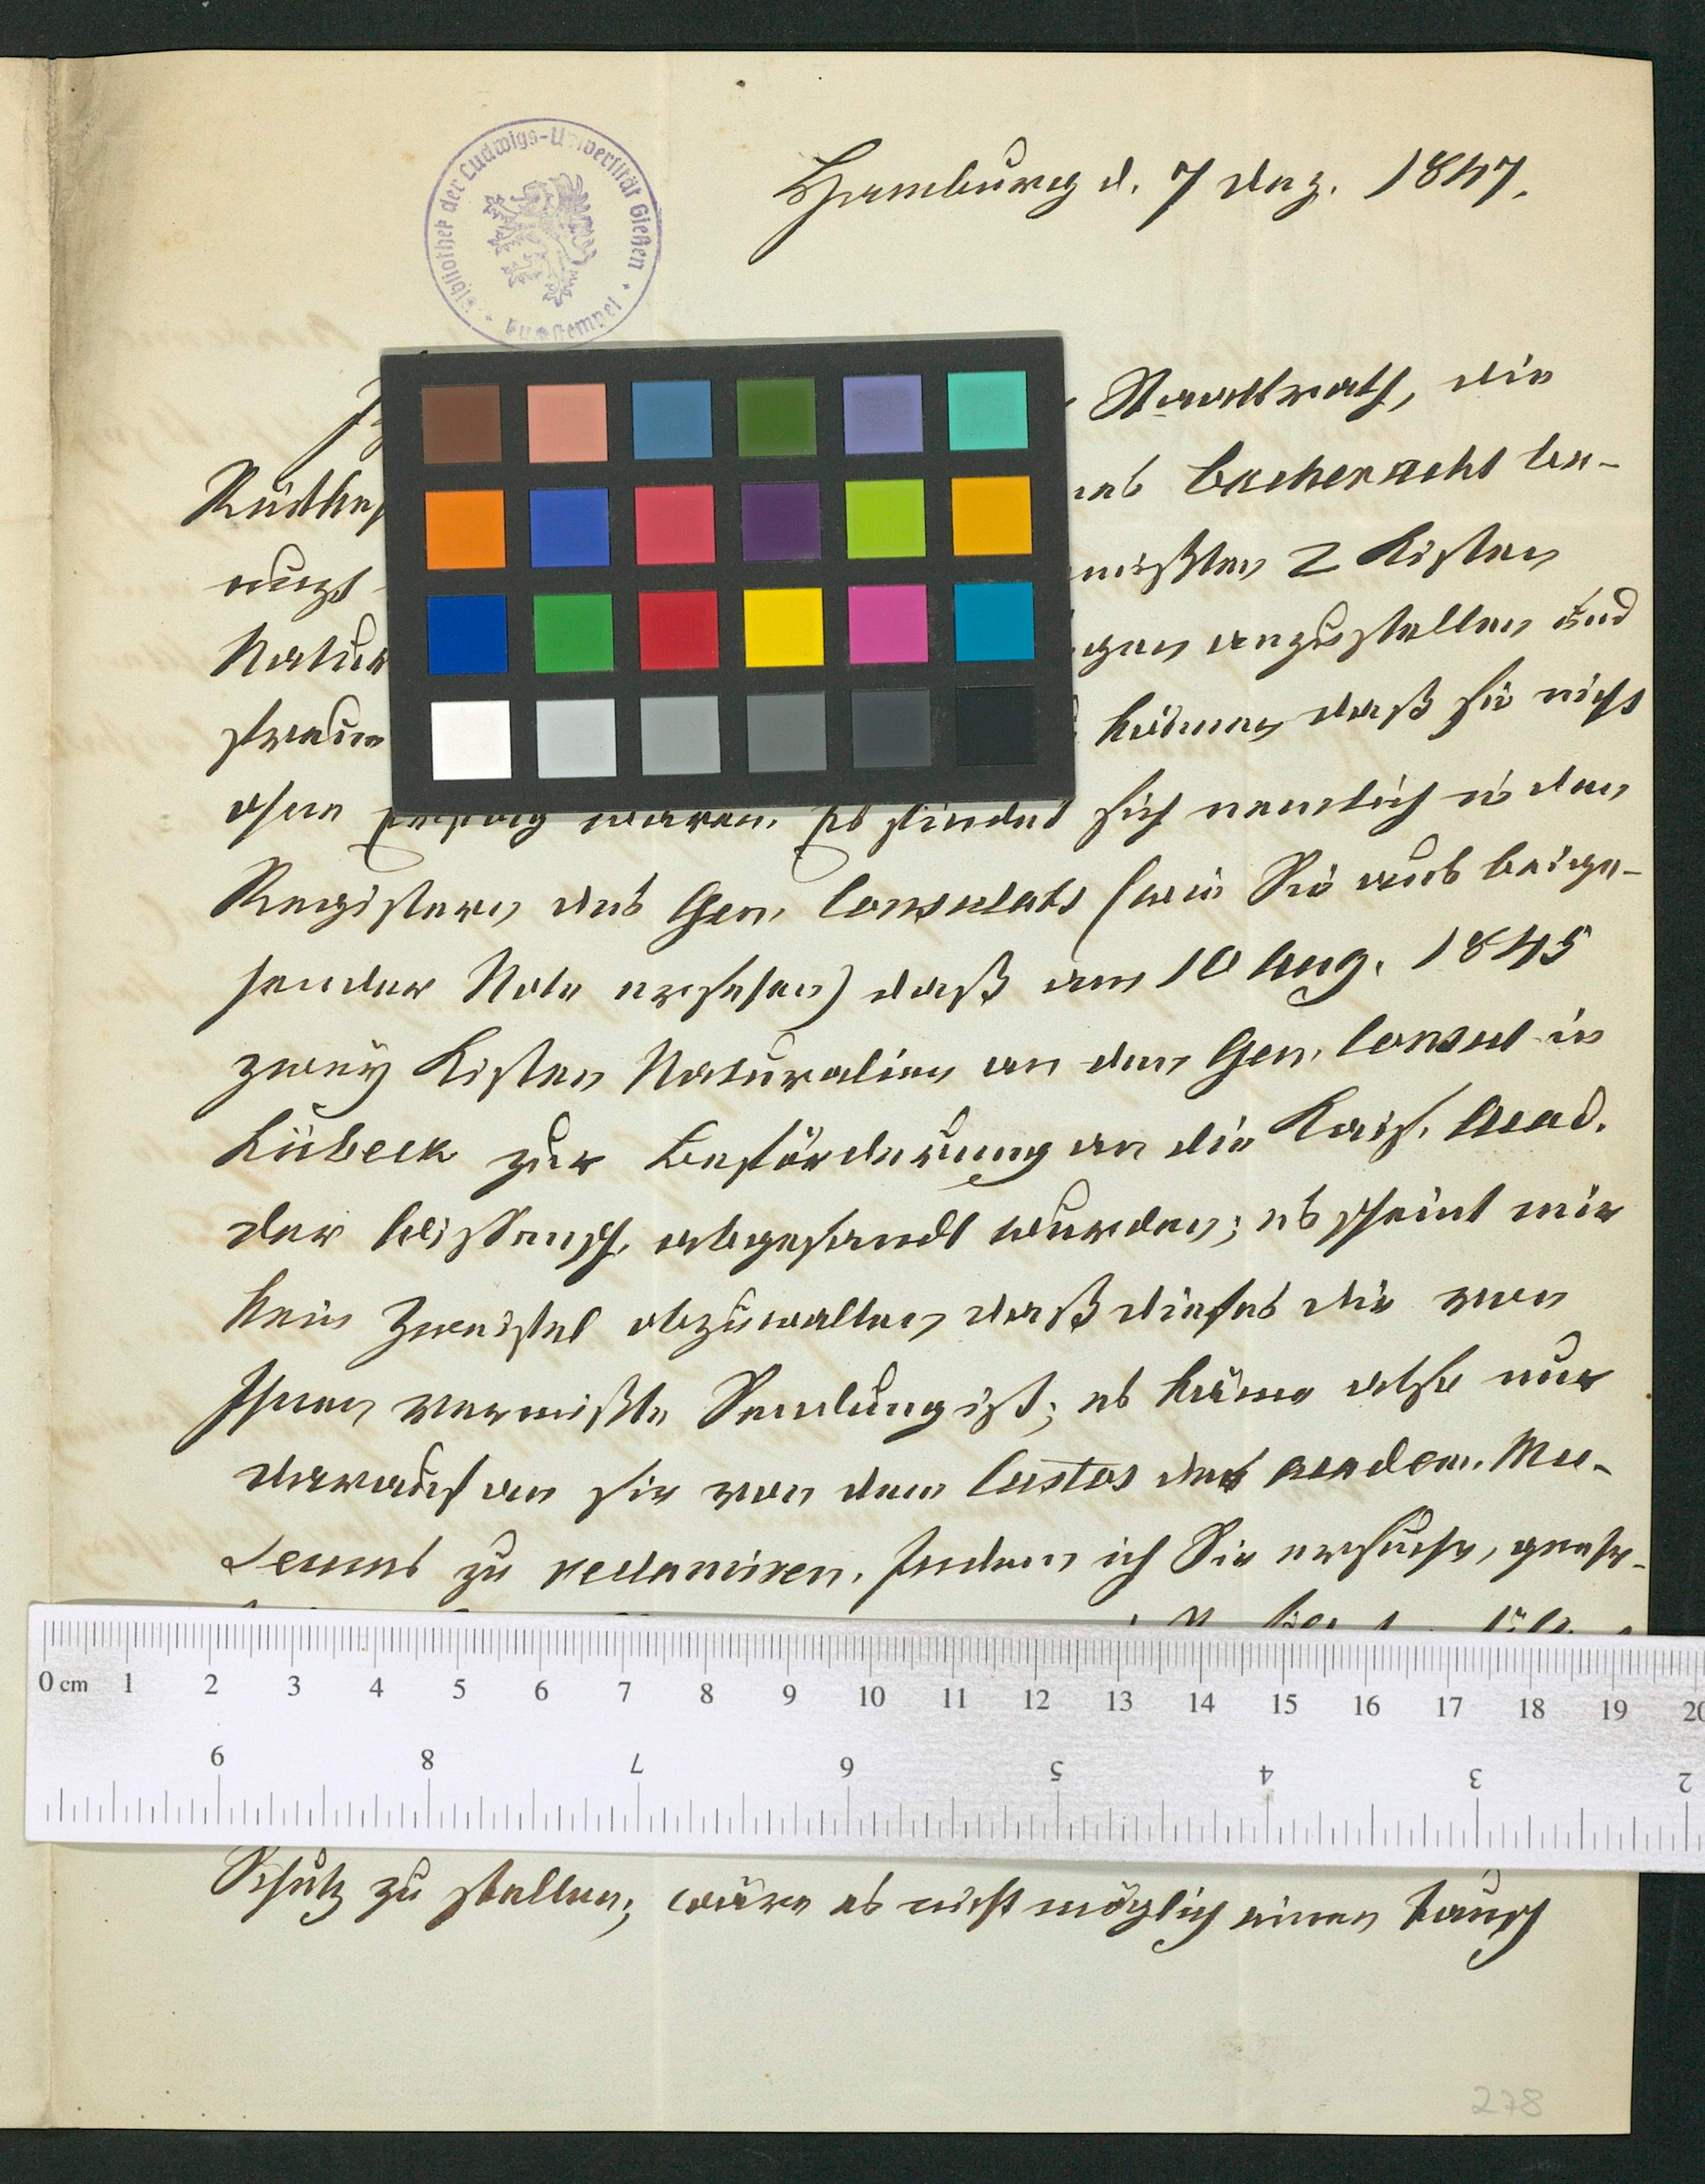 Bibliothek der Ludwigs-Universität Gießen
Hamburg d. 7 Dez. 1847.
Staatsrath, die
Bacheracht be-
nuzt 2 Kisten
anzustellen und
können daß sie nicht
ohne Erfolg waren. Es findet sich nemlich in den
Registern des Gen. Consulats (wie Sie aus beige-
hender Note ersehen) daß am 10 Aug. 1845
zwey Kisten Naturalien an den Gen. Consul in
Lübeck zur Beförderung an die Kais. Acad.
der Wissensch. abgesandt wurden; es scheint mir
kein Zweifel obzuwalten daß dieses die von
Ihnen vermißte Sendung ist; es käme also nur
darauf an sie von dem Custos des academ. Mu-
seums zu reclamiren. Indem ich Sie ersuche, geehr-
0 cm 1 2 3 4 5 6 7 8 9 10 11 12 13 14 15 16 17 18 19 20
9 8 7 6 5 4 3 2
Schutz zu stellen; wäre es nicht möglich einen Tausch
278